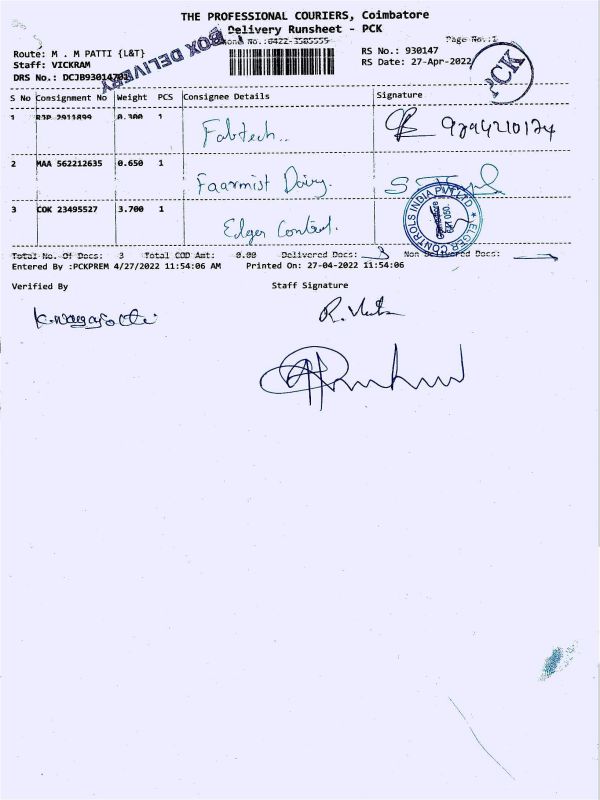 THE PROFESSIONAL COURIERS, Coimbatore
Delivery Runsheet - PCK
Phone No.:0422-3505555
Page No.:1
Route: M . M PATTI {L&T}
RS No.: 930147
Staff: VICKRAM
RS Date: 27-Apr-2022
DRS No.: DCJB93014701
BOX DELIVERY
PCK
S No Consignment No Weight PCS Consignee Details Signature
1 RJP 2911899 0.300 1 Fabtech.. 9294210174
2 MAA 562212635 0.650 1 Faarmist Dairy.
3 COK 23495527 3.700 1 Edger Control.
ELGER CONTROLS INDIA PVT LTD
Total No. Of Docs: 3 Total COD Amt: 0.00 Delivered Docs: 3 Non Delivered Docs:
Entered By :PCKPREM 4/27/2022 11:54:06 AM Printed On: 27-04-2022 11:54:06
Verified By Staff Signature